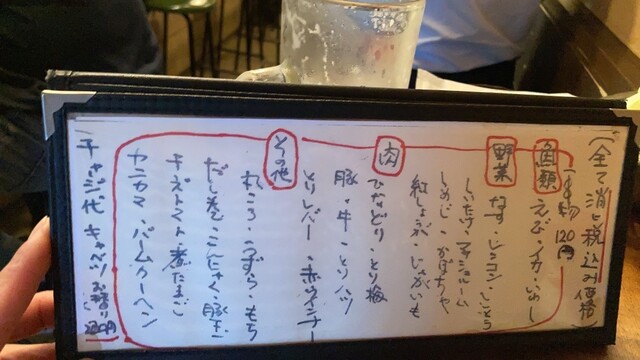 (全て消費税込み価格)
串物 120円
魚類 えび・イカ・いわし
野菜 なす・レンコン・ししとう
しいたけ・マッシュルーム
しめじ・かぼちゃ
紅しょうが・じゃがいも
肉 ひなどり・とり梅
豚・牛・とりハツ
とりレバー・赤ウィンナー
その他 うずら・もち
だし巻・こんにゃく・豚玉
チーズトマト・煮たまご
カニカマ・バームクーヘン
チャージ代 キャベツお替り